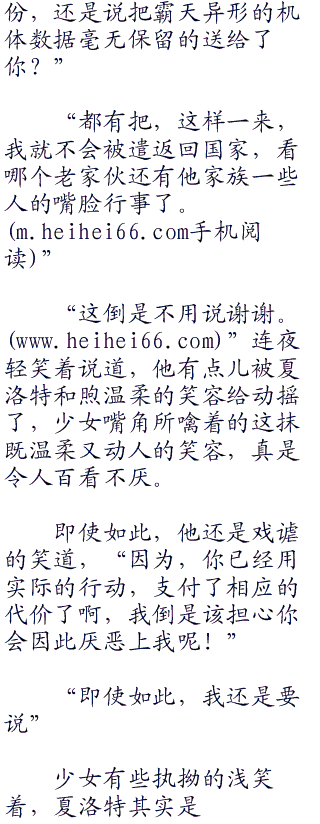 份，还是说把霸天异形的机
体数据毫无保留的送给了
你？”
“都有把，这样一来，
我就不会被遣返回国家，看
哪个老家伙还有他家族一些
人的嘴脸行事了。
(m.heihei66.com手机阅
读)”
“这倒是不用说谢谢。
(www.heihei66.com)”连夜
轻笑着说道，他有点儿被夏
洛特和煦温柔的笑容给动摇
了，少女嘴角所噙着的这抹
既温柔又动人的笑容，真是
令人百看不厌。
即使如此，他还是戏谑
的笑道，“因为，你已经用
实际的行动，支付了相应的
代价了啊，我倒是该担心你
会因此厌恶上我呢！”
“即使如此，我还是要
说”
少女有些执拗的浅笑
着，夏洛特其实是